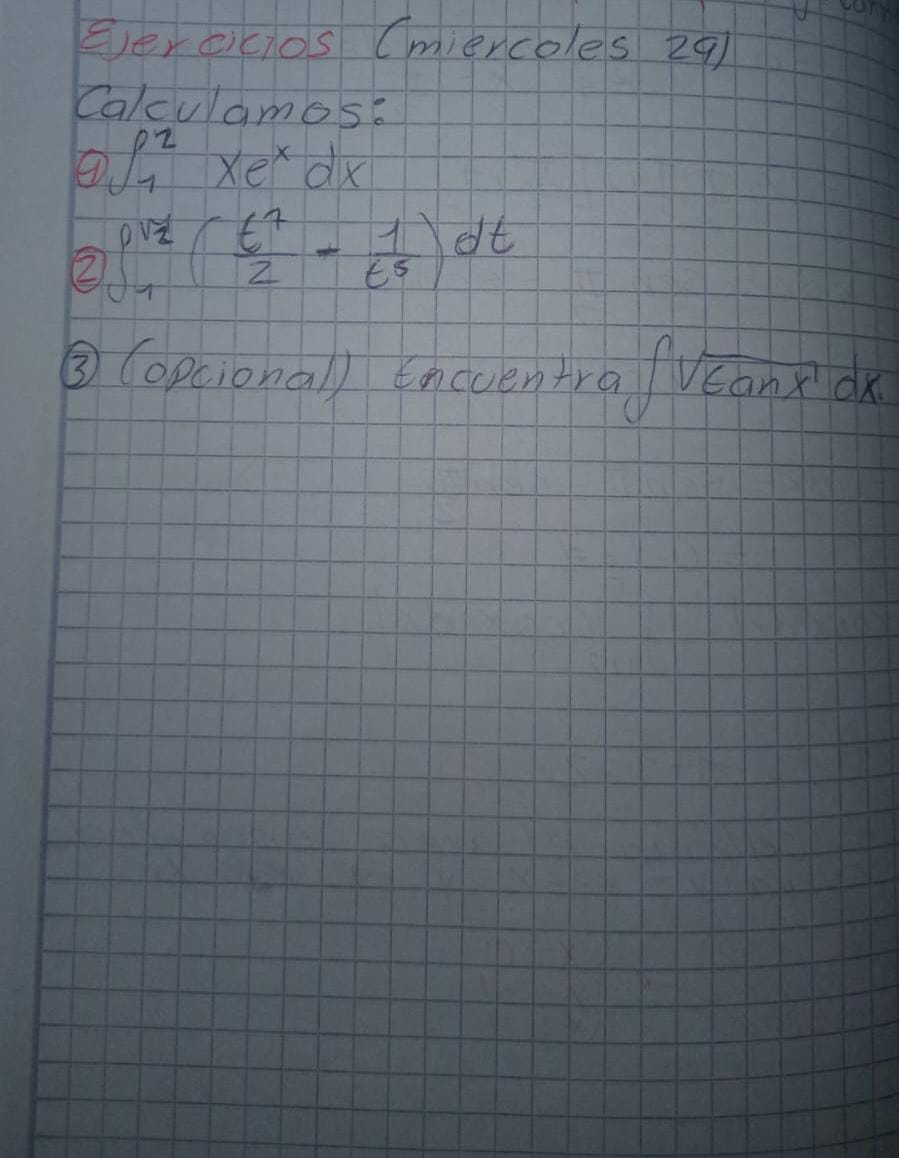 Ejercicios (miercoles 29)
Calculamos:
① ∫₁² xeˣ dx
② ∫₁^√2 (t⁷/2 - 1/t⁵) dt
③ (opcional) Encuentra ∫√tan x dx.